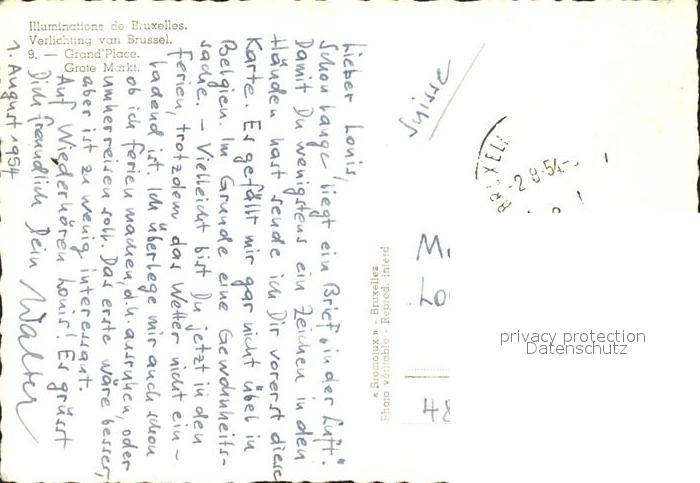 Illuminations de Bruxelles.
Verlichting van Brussel.
9. — Grand'Place.
Grote Markt.
Lieber Louis,
Schon lange liegt ein Brief "in der Luft".
Damit Du wenigstens ein Zeichen in den
Händen hast sende ich Dir vorerst diese
Karte. Es gefällt mir gar nicht übel in
Belgien. Im Grunde eine Gewohnheits-
sache. – Vielleicht bist Du jetzt in den
Ferien, trotzdem das Wetter nicht ein-
ladend ist. Ich überlege mir auch schon
ob ich Ferien machen, d.h. ausruhen, oder
umherreisen soll. Das erste wäre besser,
aber ist zu wenig interessant.
Auf Wiederhören Louis! Es grüsst
Dich freundlich Dein Walter
1. August 1954
« Bromolux » - Bruxelles
Photo véritable - Reprod. interd
Suisse
BRUXEL
-2 8-54-
M
Lo
48
privacy protection
Datenschutz